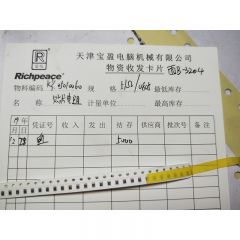 天津宝盈电脑机械有限公司
Richpeace
物资收发卡片 西B-3204
物料编码 规格 最低库存
名称 贴片电阻 计量单位 最高库存
年 凭证号 收入 发出 结存 供应商 批次号 备注
月 日
5000